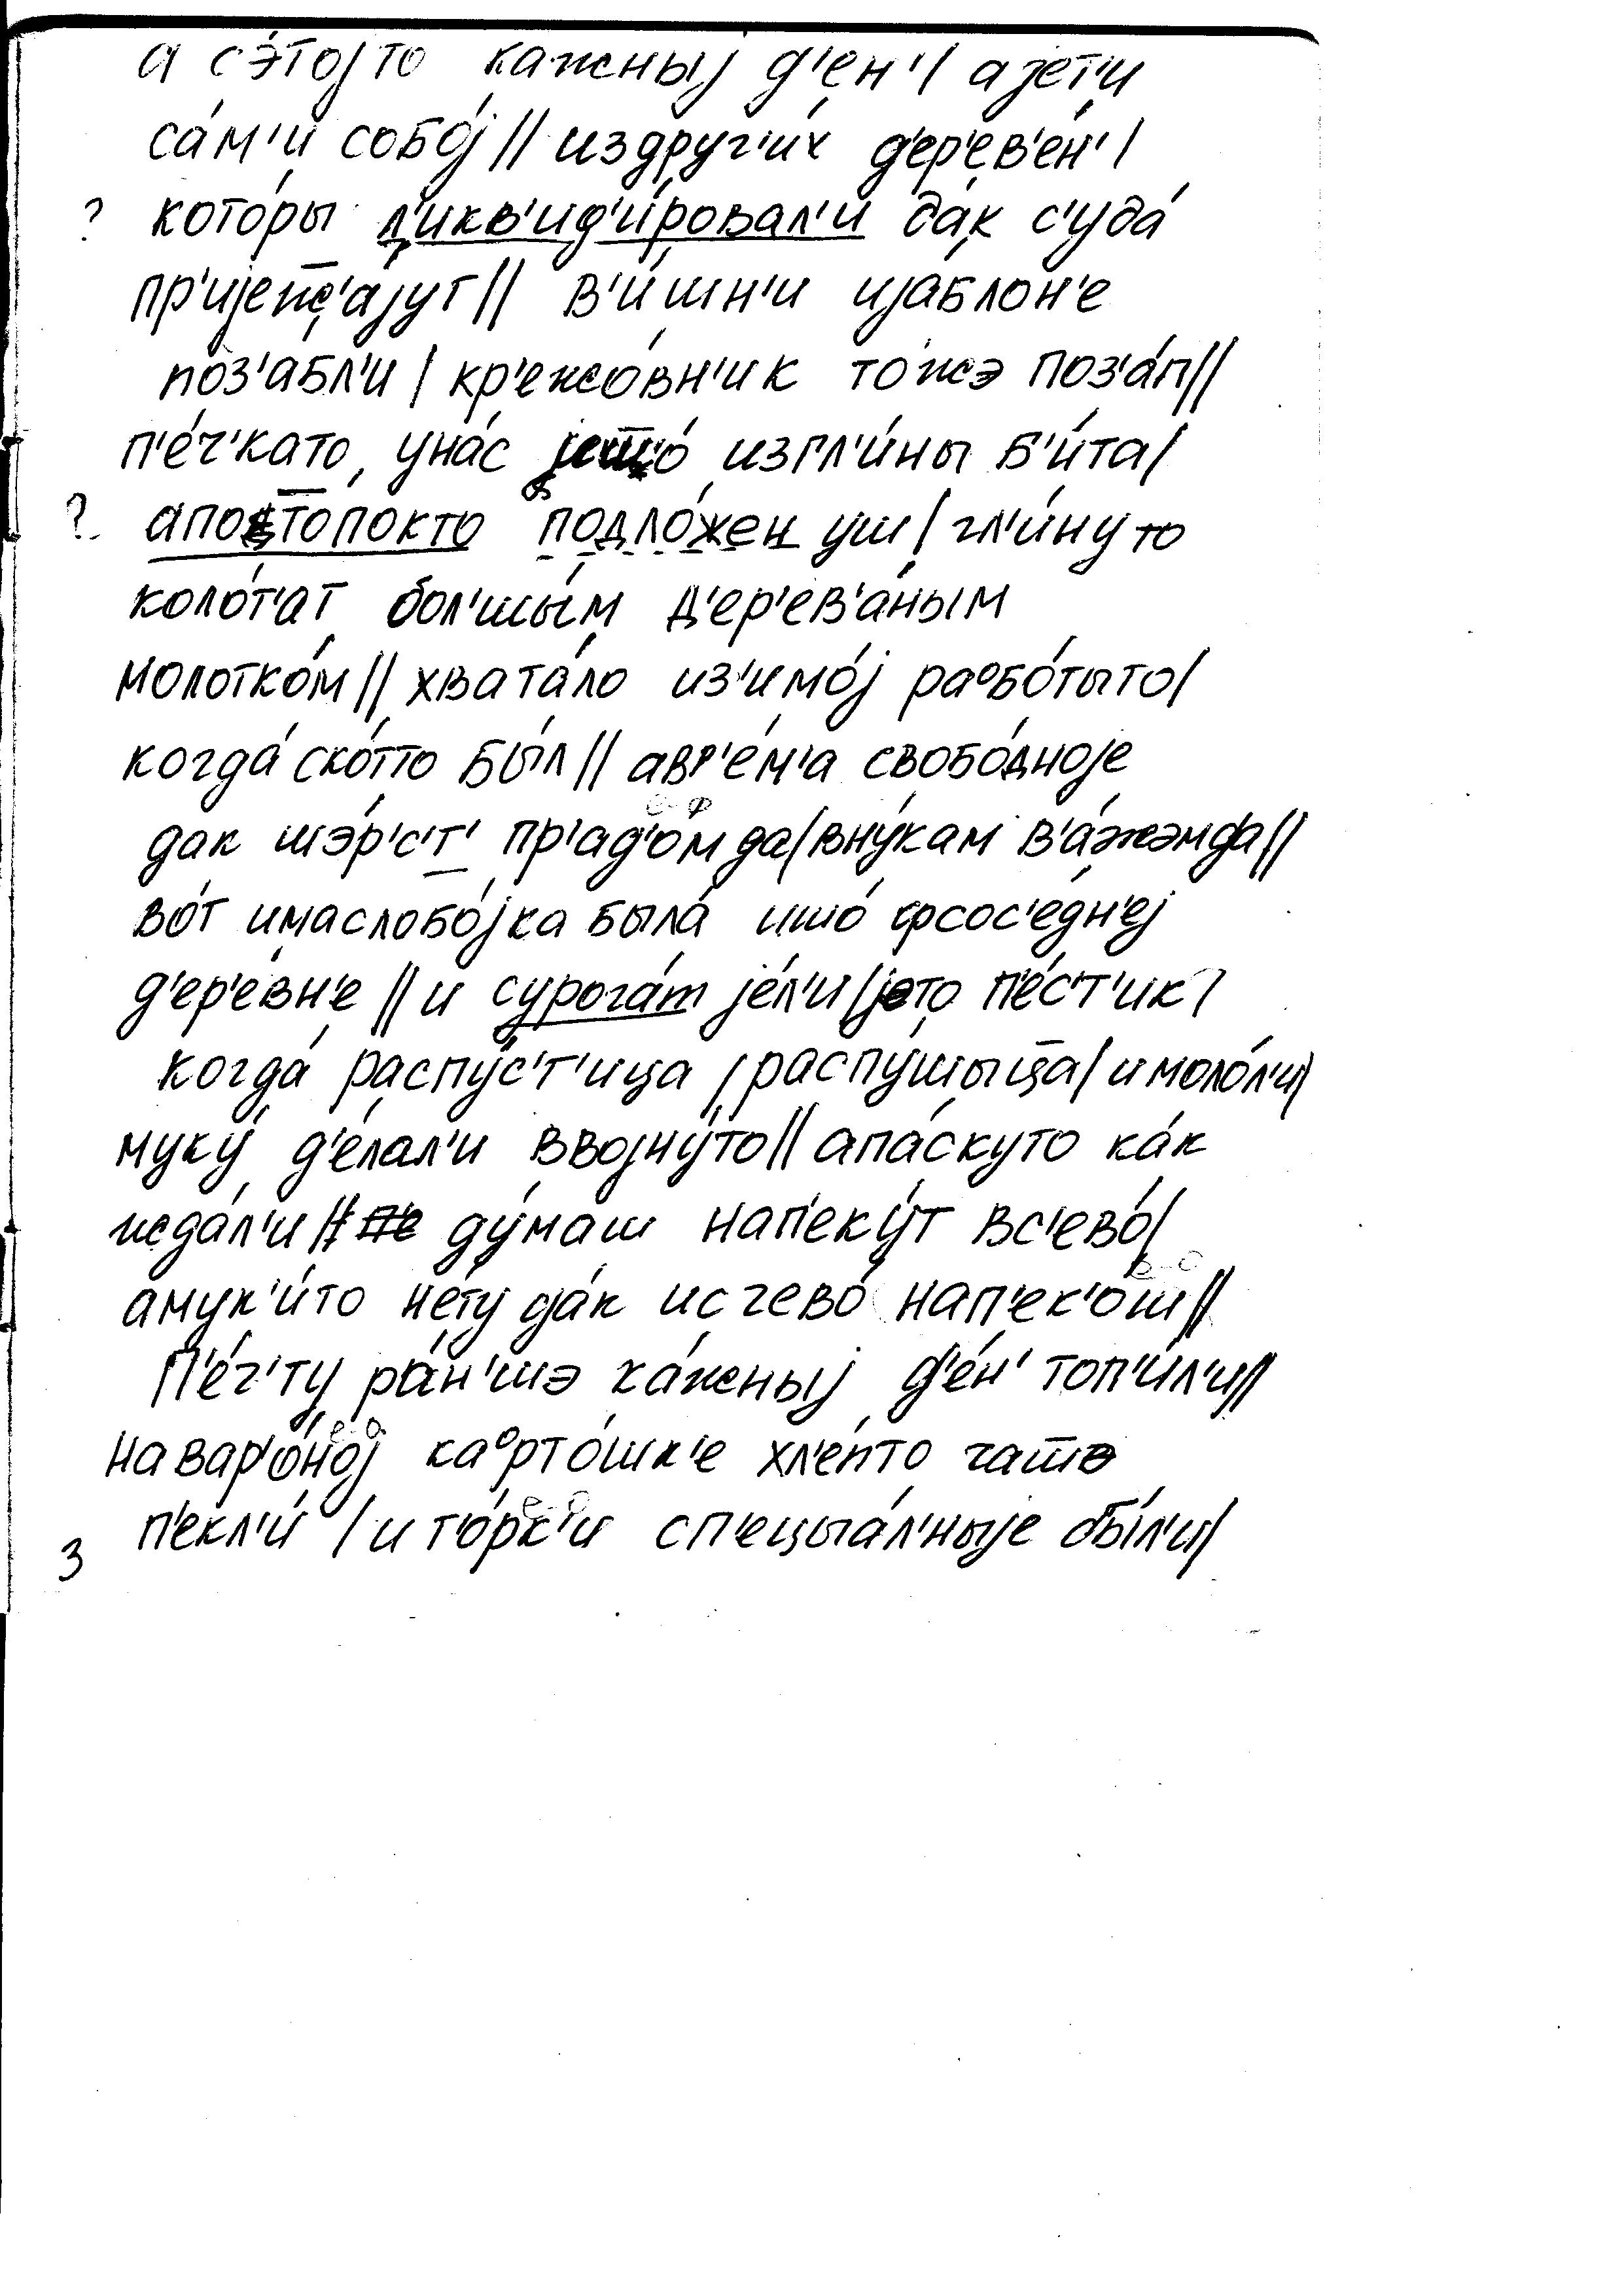 а с'э́тојто кажныј д'ен'/ ајет'и
са́м'и собо́ј // издруг'и́х д'ер'ев'е́н' /
? кото́ры л'икв'ид'и́ровал'и да́к с'уда́
в'и́шн'и ијаблон'е
по́з'абл'и / кр'ежо́вн'ик то́жэ поз'а́п//
п'е́ч'като уна́с изгл'и́ны б'и́та/
? подло́жен уш / гл'и́нуто
коло́т'ат бол'шы́м д'ер'ев'а́ным
молотко́м // хвата́ло из'имо́ј раᵒбо́тыто/
когда́ ско́тто бы́л // авр'е́м'а свобо́дноје
дак шэ́р'с'т' пр'ад'о́м да/вну́кам в'а́жэмда//
во́т имаслобо́јка была́ ишо́ фсос'е́дн'еј
д'ер'е́вн'е // и сурога́т је́л'и /јето п'е́с'т'ик/
когда́ распу́с'т'ица /распу́шыца/ имоло́л'и/
муку́ д'е́лал'и ввојну́то// апа́скуто ка́к
жда́л'и // ду́маш нап'еку́т вс'ево́/
амук'и́то не́ту да́к исчево́ нап'ек'о́ш//
п'е́ч'ту ра́н'шэ ка́жныј д'е́н' топ'и́л'и//
навар'о́ној каᵒрто́шк'е хл'е́пто
3 п'екл'и́ / и т'о́рк'и сп'ецыа́л'ныје бы́л'и/